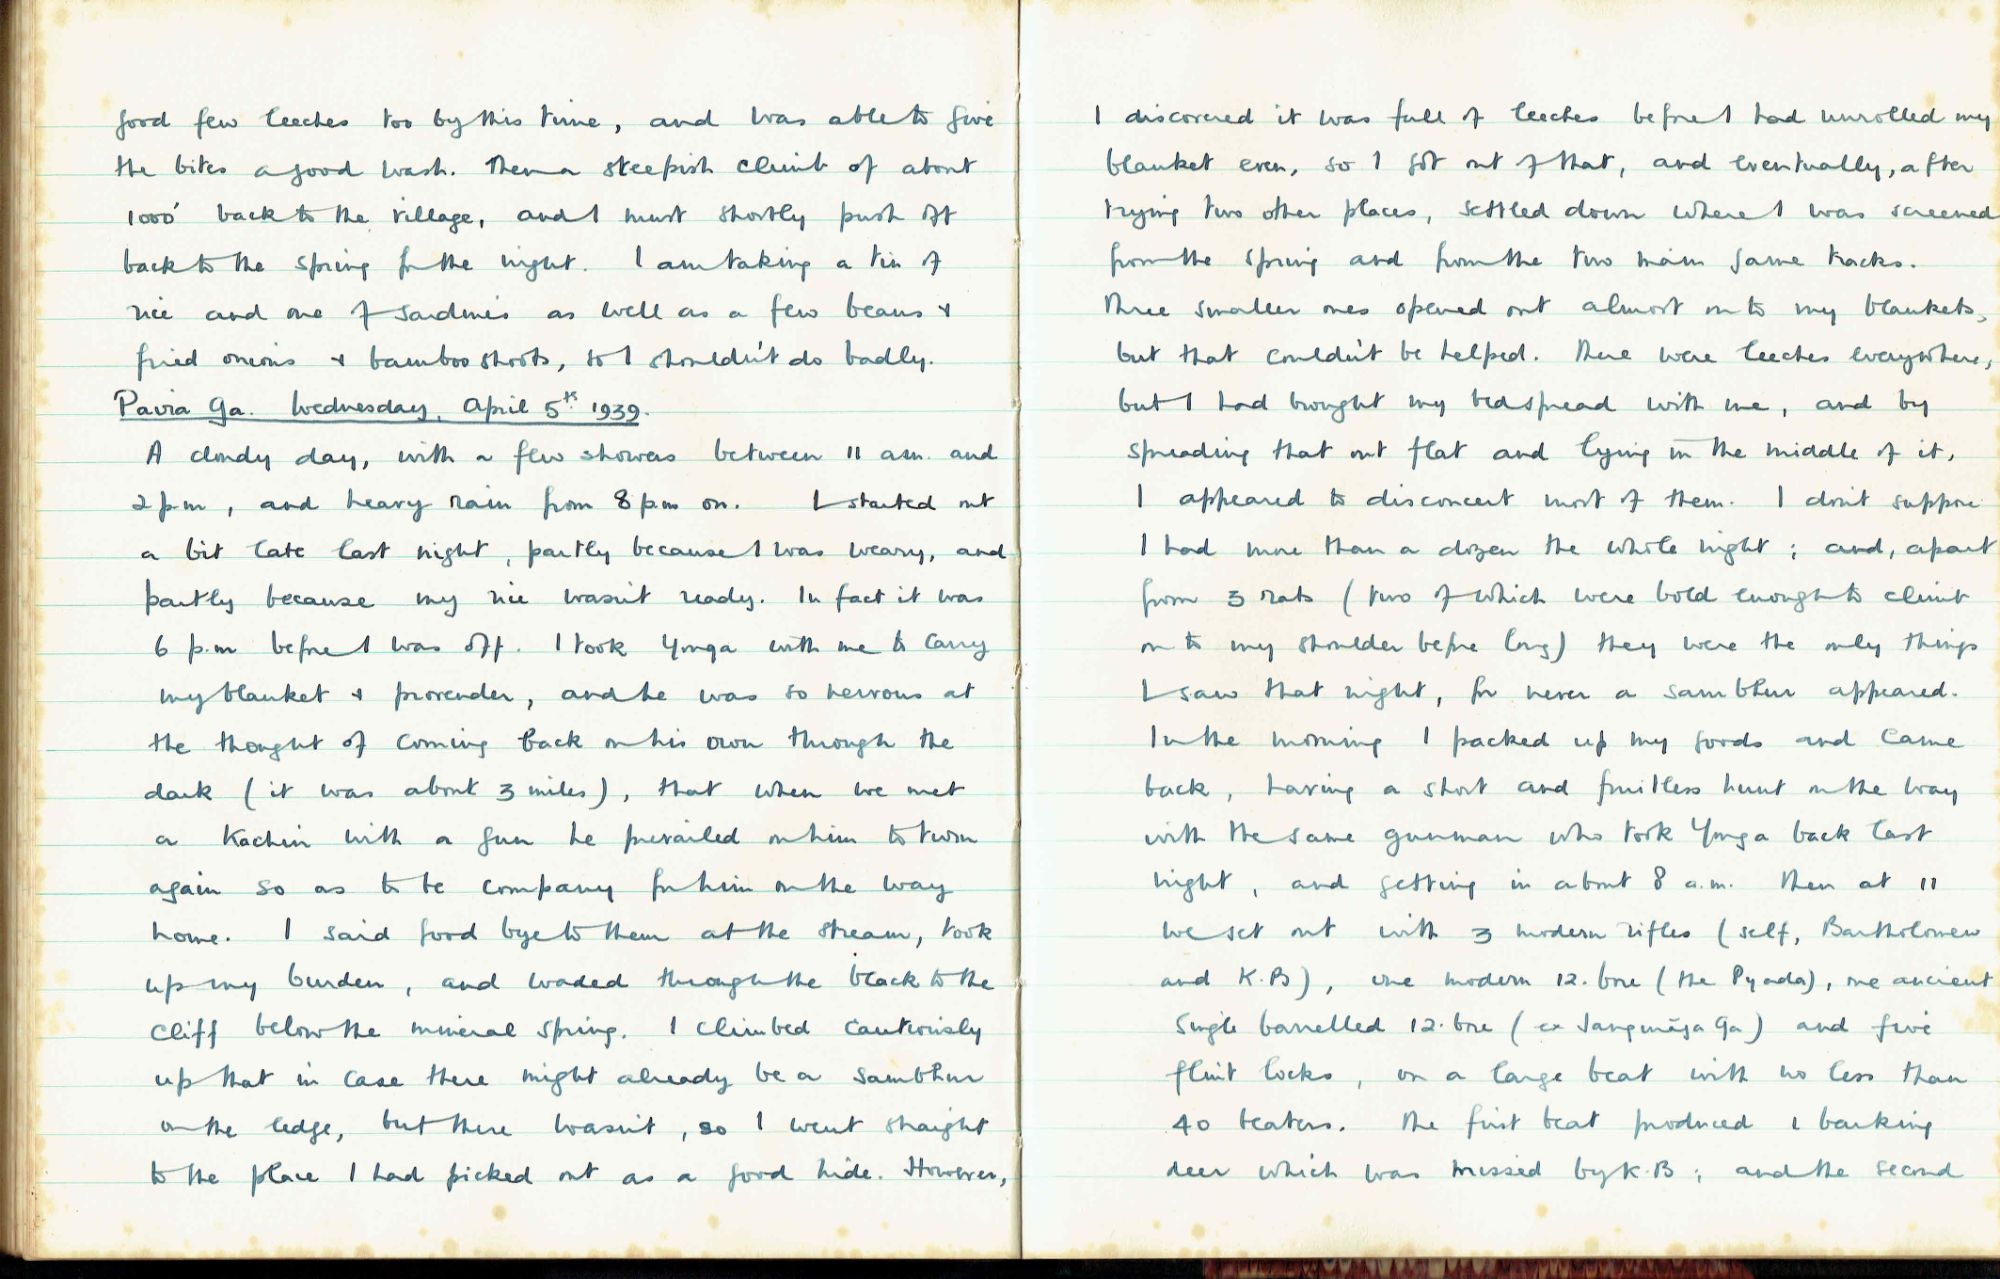 good few leeches too by this time, and was able to give
the bites a good wash. Then a steepish climb of about
1000' back to the village, and I must shortly push off
back to the spring for the night. I am taking a tin of
rice and one of sardines as well as a few beans +
fried onions + bamboo shoots, so I shouldn't do badly.
Pavia Ga. Wednesday, April 5th 1939.
A cloudy day, with a few showers between 11 am. and
2 p.m, and heavy rain from 8 p.m on. I started out
a bit late last night, partly because I was weary, and
partly because my rice wasn't ready. In fact it was
6 p.m before I was off. I took Yonga with me to carry
my blanket + provender, and he was so nervous at
the thought of coming back on his own through the
dark (it was about 3 miles), that when we met
a Kachin with a gun he prevailed on him to turn
again so as to be company for him on the way
home. I said good bye to them at the stream, took
up my burden, and waded through the black to the
cliff below the mineral spring. I climbed cautiously
up that in case there might already be a sambhur
on the ledge, but there wasn't, so I went straight
to the place I had picked out as a good hide. However,
I discovered it was full of leeches before I had unrolled my
blanket even, so I got out of that, and eventually, after
trying two other places, settled down where I was screened
from the spring and from the two main game tracks.
Three smaller ones opened out almost on to my blankets,
but that couldn't be helped. There were leeches everywhere,
but I had brought my bedspread with me, and by
spreading that out flat and lying in the middle of it,
I appeared to disconcert most of them. I don't suppose
I had more than a dozen the whole night; and, apart
from 3 rats (two of which were bold enough to climb
on to my shoulder before long) they were the only things
I saw that night, for never a sambhur appeared.
In the morning I packed up my goods and came
back, having a short and fruitless hunt on the way
with the same gunman who took Yonga back last
night, and getting in about 8 a.m. Then at 11
we set out with 3 modern rifles (self, Bartholomew
and K.B), one modern 12. bore (the Pyada), one ancient
single barrelled 12. bore (ex Ga) and five
flint locks, on a large beat with no less than
40 beaters. The first beat produced 1 barking
deer which was missed by K.B; and the second